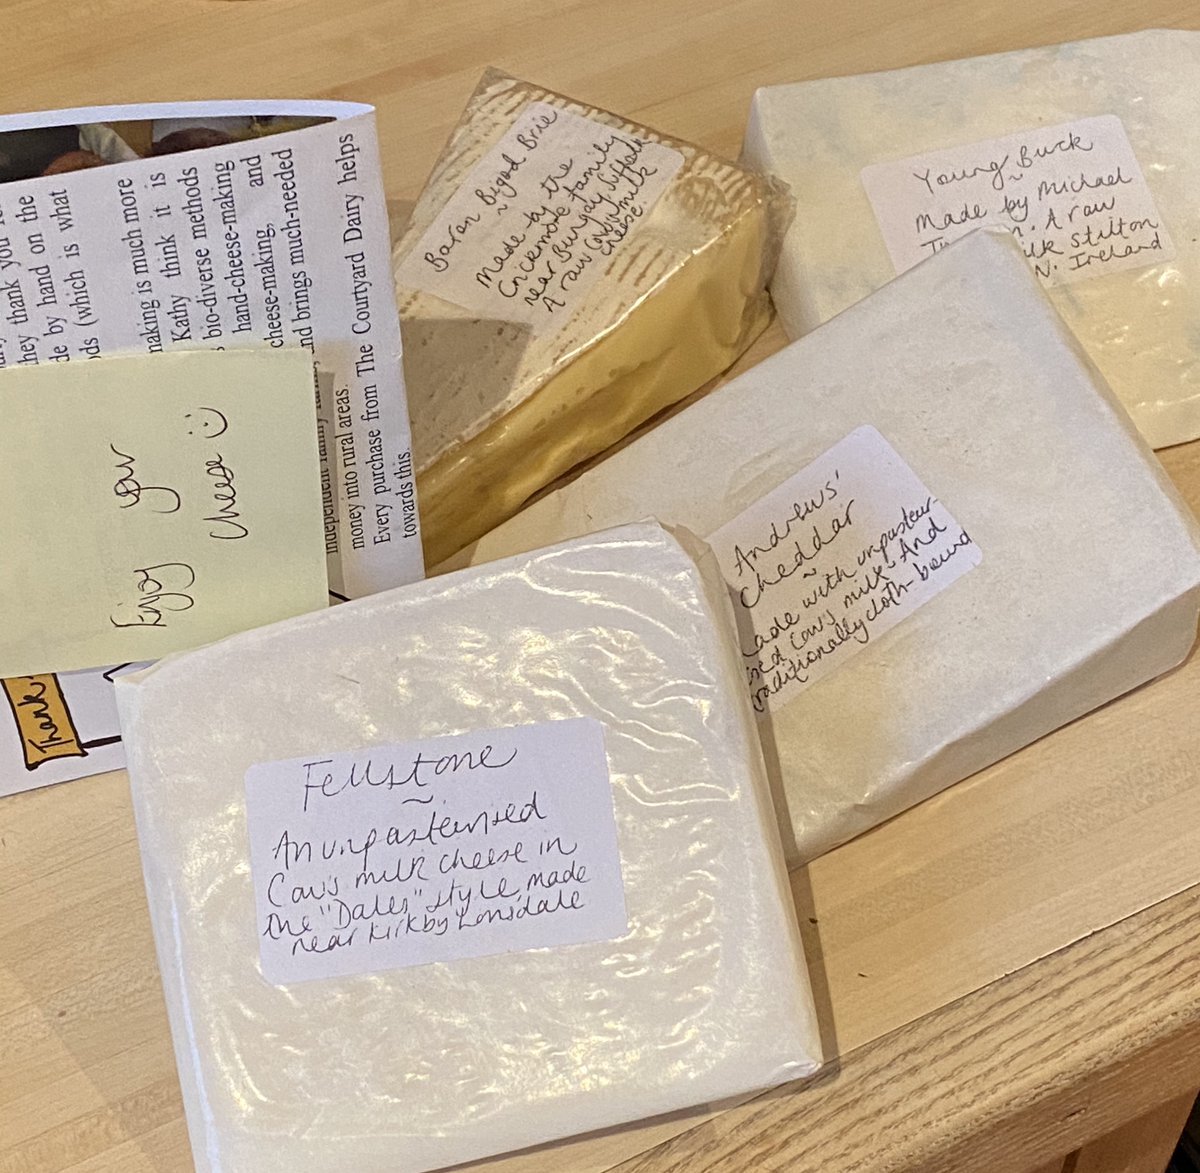 they thank you for
de by hand on the
ds (which is what
making is much more
Kathy think it is
bio-diverse methods
hand-cheese-making
cheese-making, and
and brings much-needed
independent family farms,
money into rural areas.
Every purchase from The Courtyard Dairy helps
towards this.
Enjoy your
cheese :)
Thank
Baron Bigod Brie
~
Made by the
Crickmore family
near Bungay, Suffolk
A raw cow's milk
cheese.
Young Buck
~
Made by Michael
A raw
milk Stilton
N. Ireland
Andrews'
Cheddar
~
ade with unpasteur-
ised cow's milk. And
traditionally cloth-bound
Fellstone
~
An unpasteurised
Cow's milk cheese in
the "Dales" style, made
near Kirkby Lonsdale